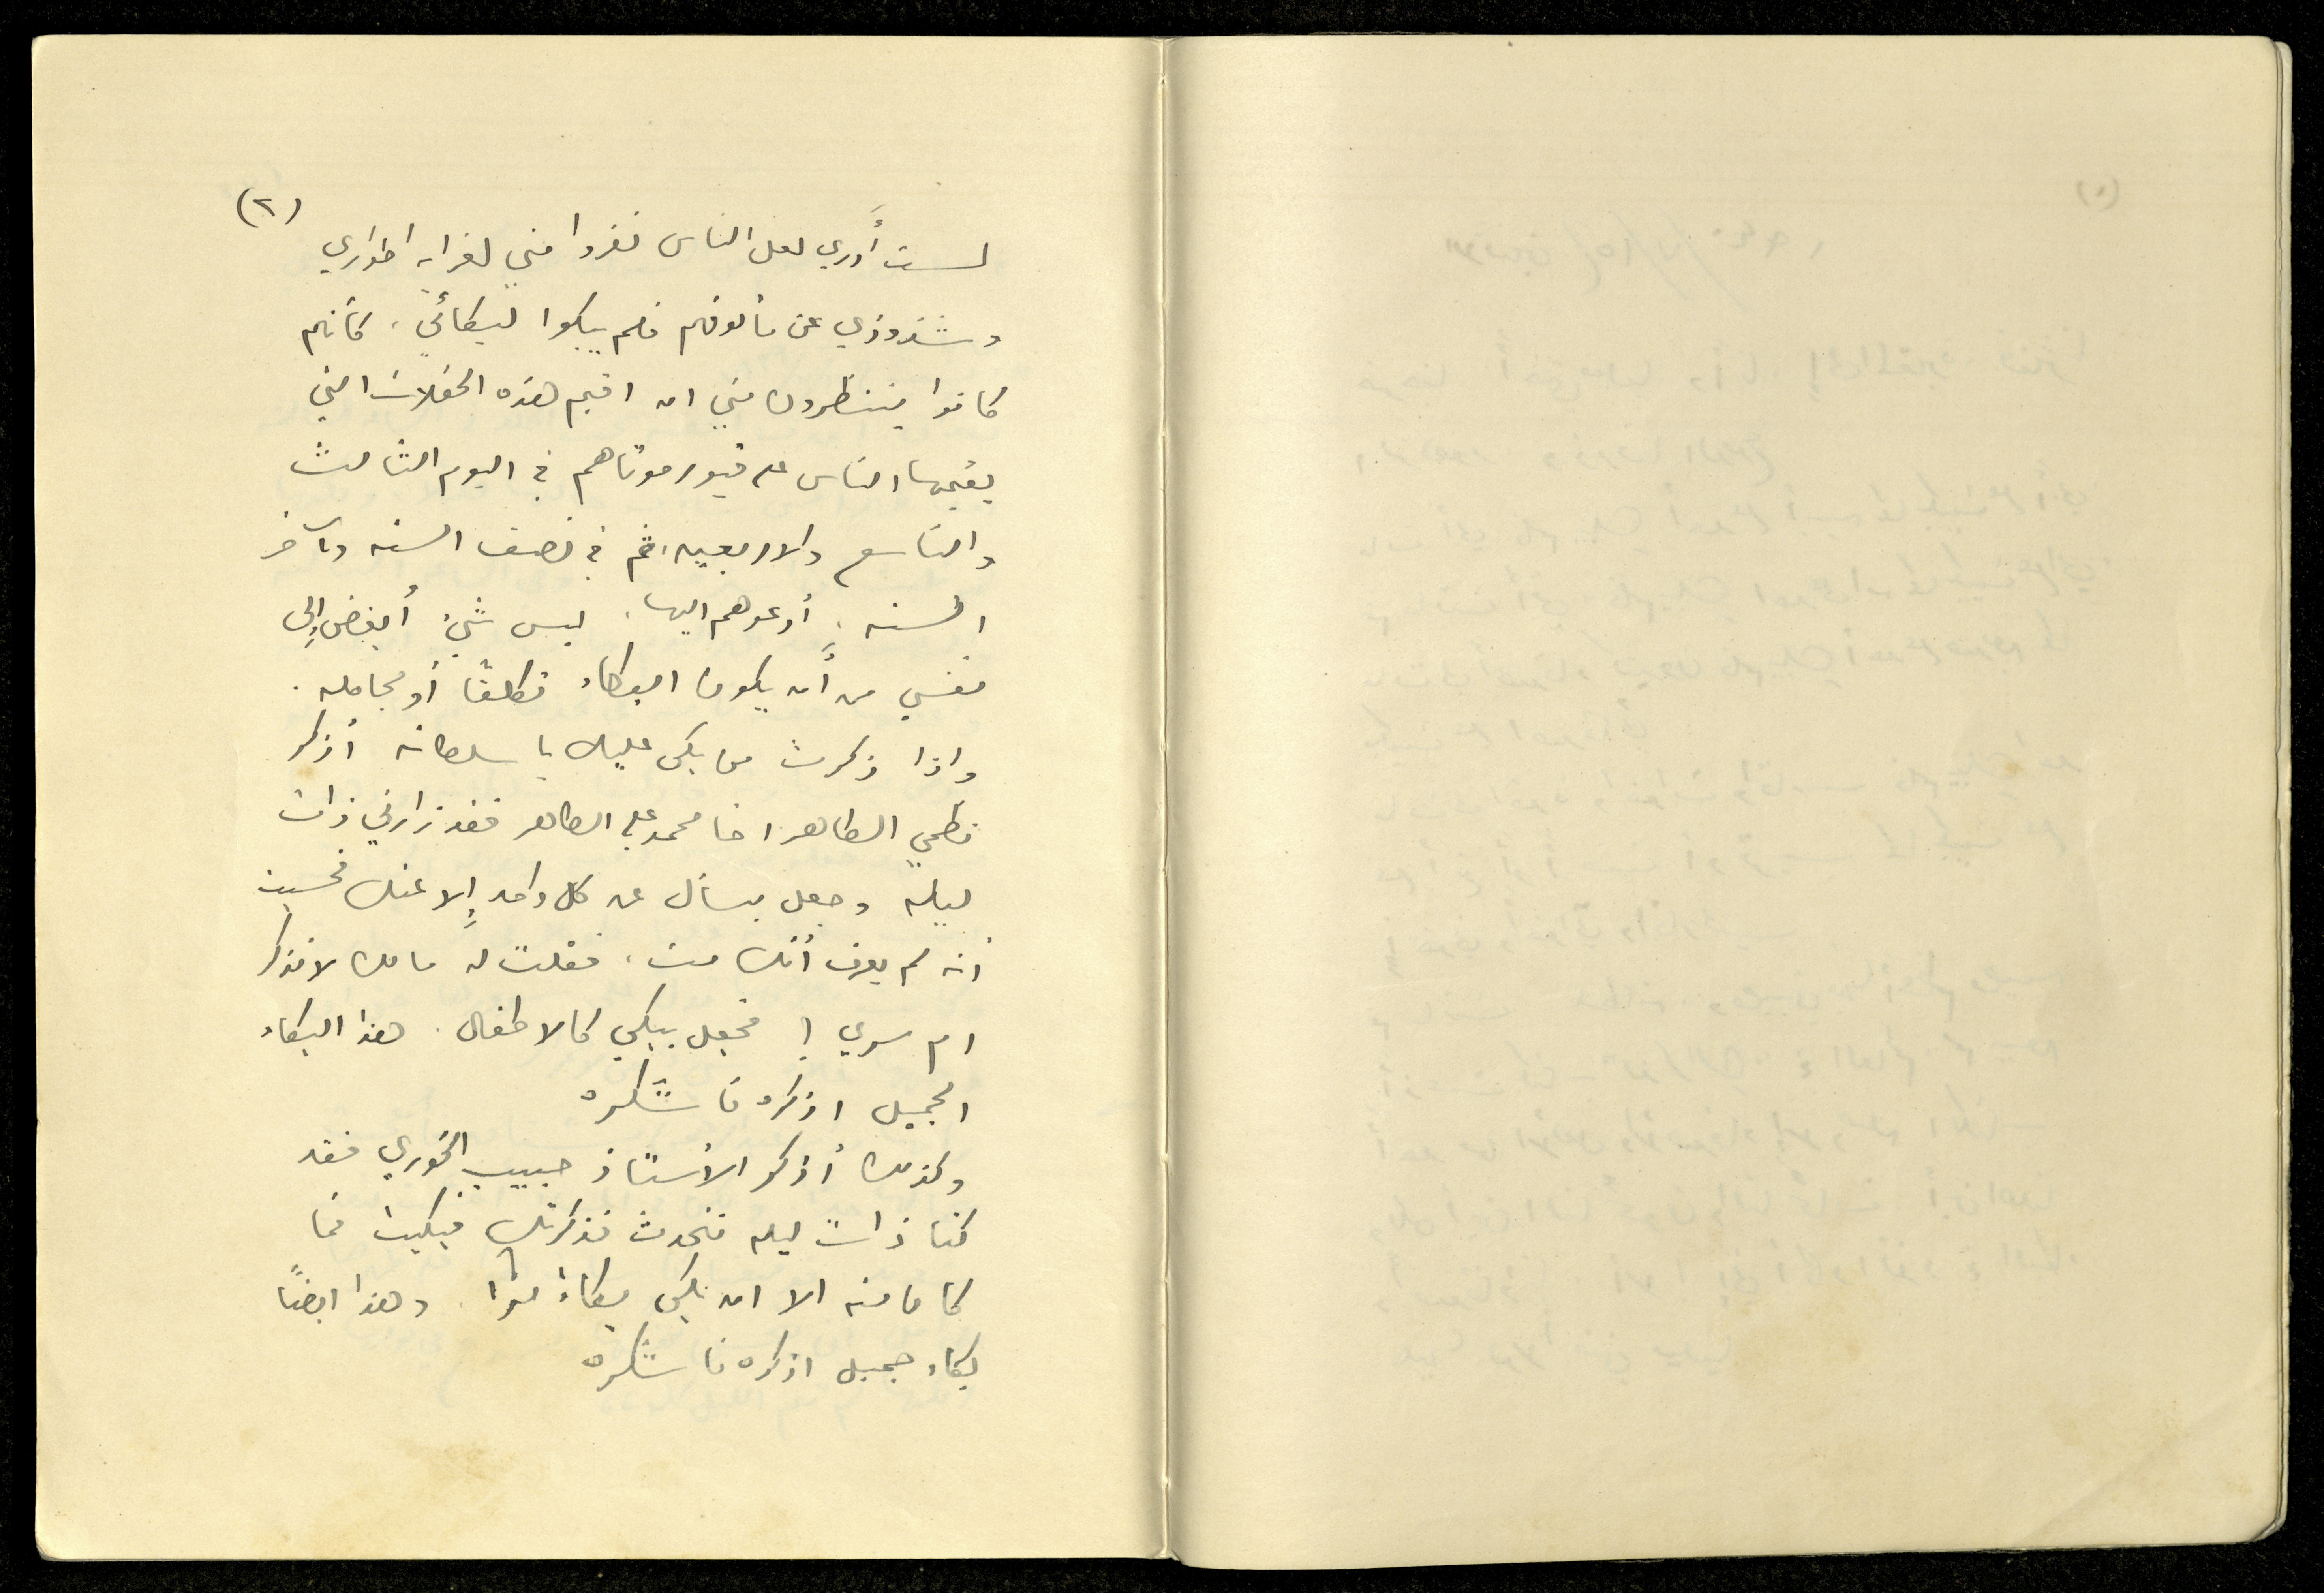 (٢)
لست أدري لعل الناس نفروا مني لغرابة اطواري
وشذوذي عن مألوفهم فلم يبكوا لبكائي، كأنهم
كانوا ينتظرون مني ان اقيم هذه الحفلات التي
يقيمها الناس على قبور موتاهم في اليوم الثالث
والتاسع والاربعين، ثم في نصف السنه وآخر
السنه، أدعوهم اليها، ليس شيء أبغض إلى
نفسي من أن يكون البكاء تكلفا أو مجامله.
واذا ذكرت من بكى عليك يا سلطانه أذكر
نظمي الطاهر اخا محمد علي الطاهر فقد زارني ذات
ليله وجعل يسأل عن كل واحد إلا عنك فحسبت
أنه لم يعرف أنك مت، فقلت له مالك لا تذكر
ام سري؟ فجعل يبكي كالاطفال. هذا البكاء
الجميل اذكره فأشكره
وكذلك أذكر الأستاذ حبيب الخوري فقد
كنا ذات ليله نتحدث فذكرتك فبكيت فما
كان منه الا ان بكى بكاءً مرا. وهذا ايضًا
بكاء جميل اذكره فأشكره